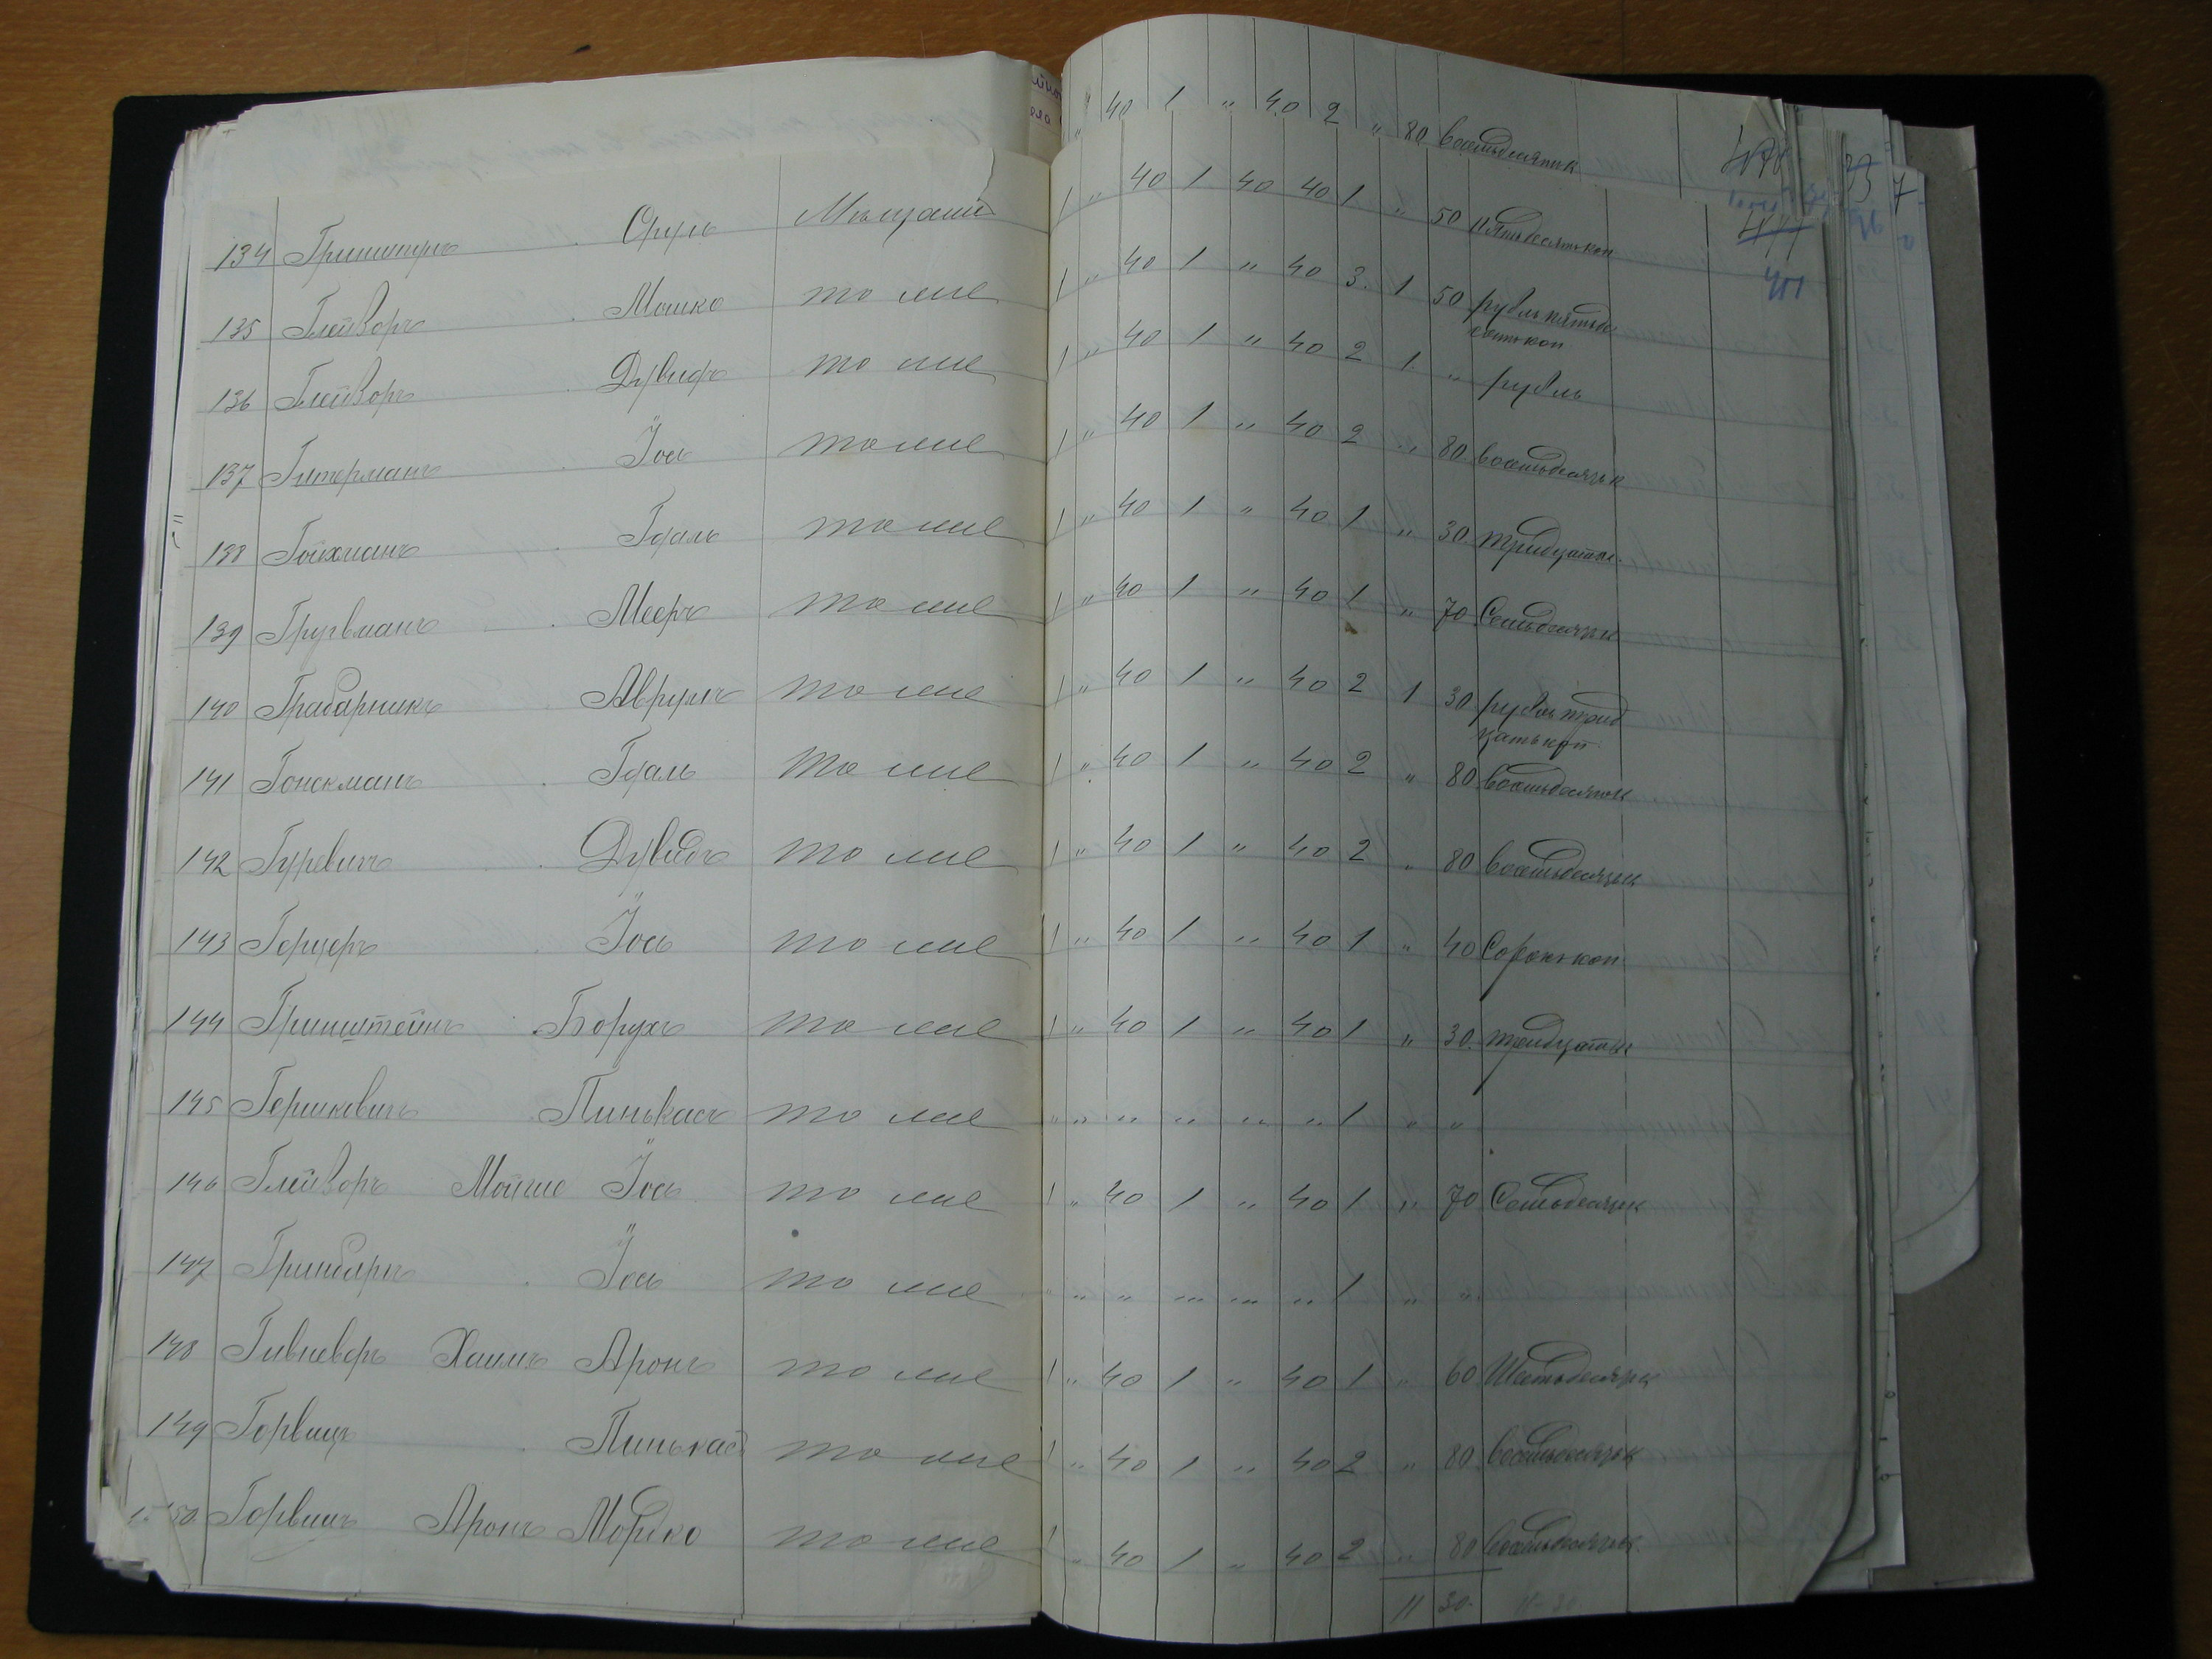 " 40 1 " 40 2 " 80 восемьдесятк
134 Гришпунъ Сруль Мѣщанинъ 1 " 40 1 40 40 1 " 50 пятьдесятькоп
135 Глейзоръ Мошко тоже 1 " 40 1 " 40 3 1 50 рубль пятьде
сятькоп
136 Глейзоръ Дувидъ тоже 1 " 40 1 " 40 2 1 " рубль
137 Гитерманъ Іось тоже 1 " 40 1 " 40 2 " 80 восемьдесятьк
138 Гойхманъ Гдаль тоже 1 " 40 1 " 40 1 " 30 тридцатьк
139 Мееръ тоже 1 " 40 1 " 40 1 " 70 Семьдесятьк
140 Грабарникъ Аврумъ тоже 1 " 40 1 " 40 2 1 30 рубль трид
цатькоп
141 Гонекманъ Гдаль тоже 1 " 40 1 " 40 2 " 80 восемьдесятьк
142 Гуревичъ Дувидъ тоже 1 " 40 1 " 40 2 " 80 восемьдесятьк
143 Герцеръ Іось тоже 1 " 40 1 " 40 1 " 40 Сорокъкоп
144 Гринштейнъ Борухъ тоже 1 " 40 1 " 40 1 " 30 тридцатьк
145 Гершковичъ Пинькасъ тоже " " " " " " 1 " "
146 Глейзоръ Мойше Іось тоже 1 " 40 1 " 40 1 " 70 Семьдесятьк
147 Гринбаръ Іось тоже " " " " " " 1 " "
148 Хаимъ Аронъ тоже 1 " 40 1 " 40 1 " 60 Шестьдесятьк
149 Горвицъ Пинькасъ тоже 1 " 40 1 " 40 2 " 80 восемьдесятьк
150 Горвицъ Аронъ Мордко тоже 1 " 40 1 " 40 2 " 80 восемьдесятьк
11 30 11-30
477
401